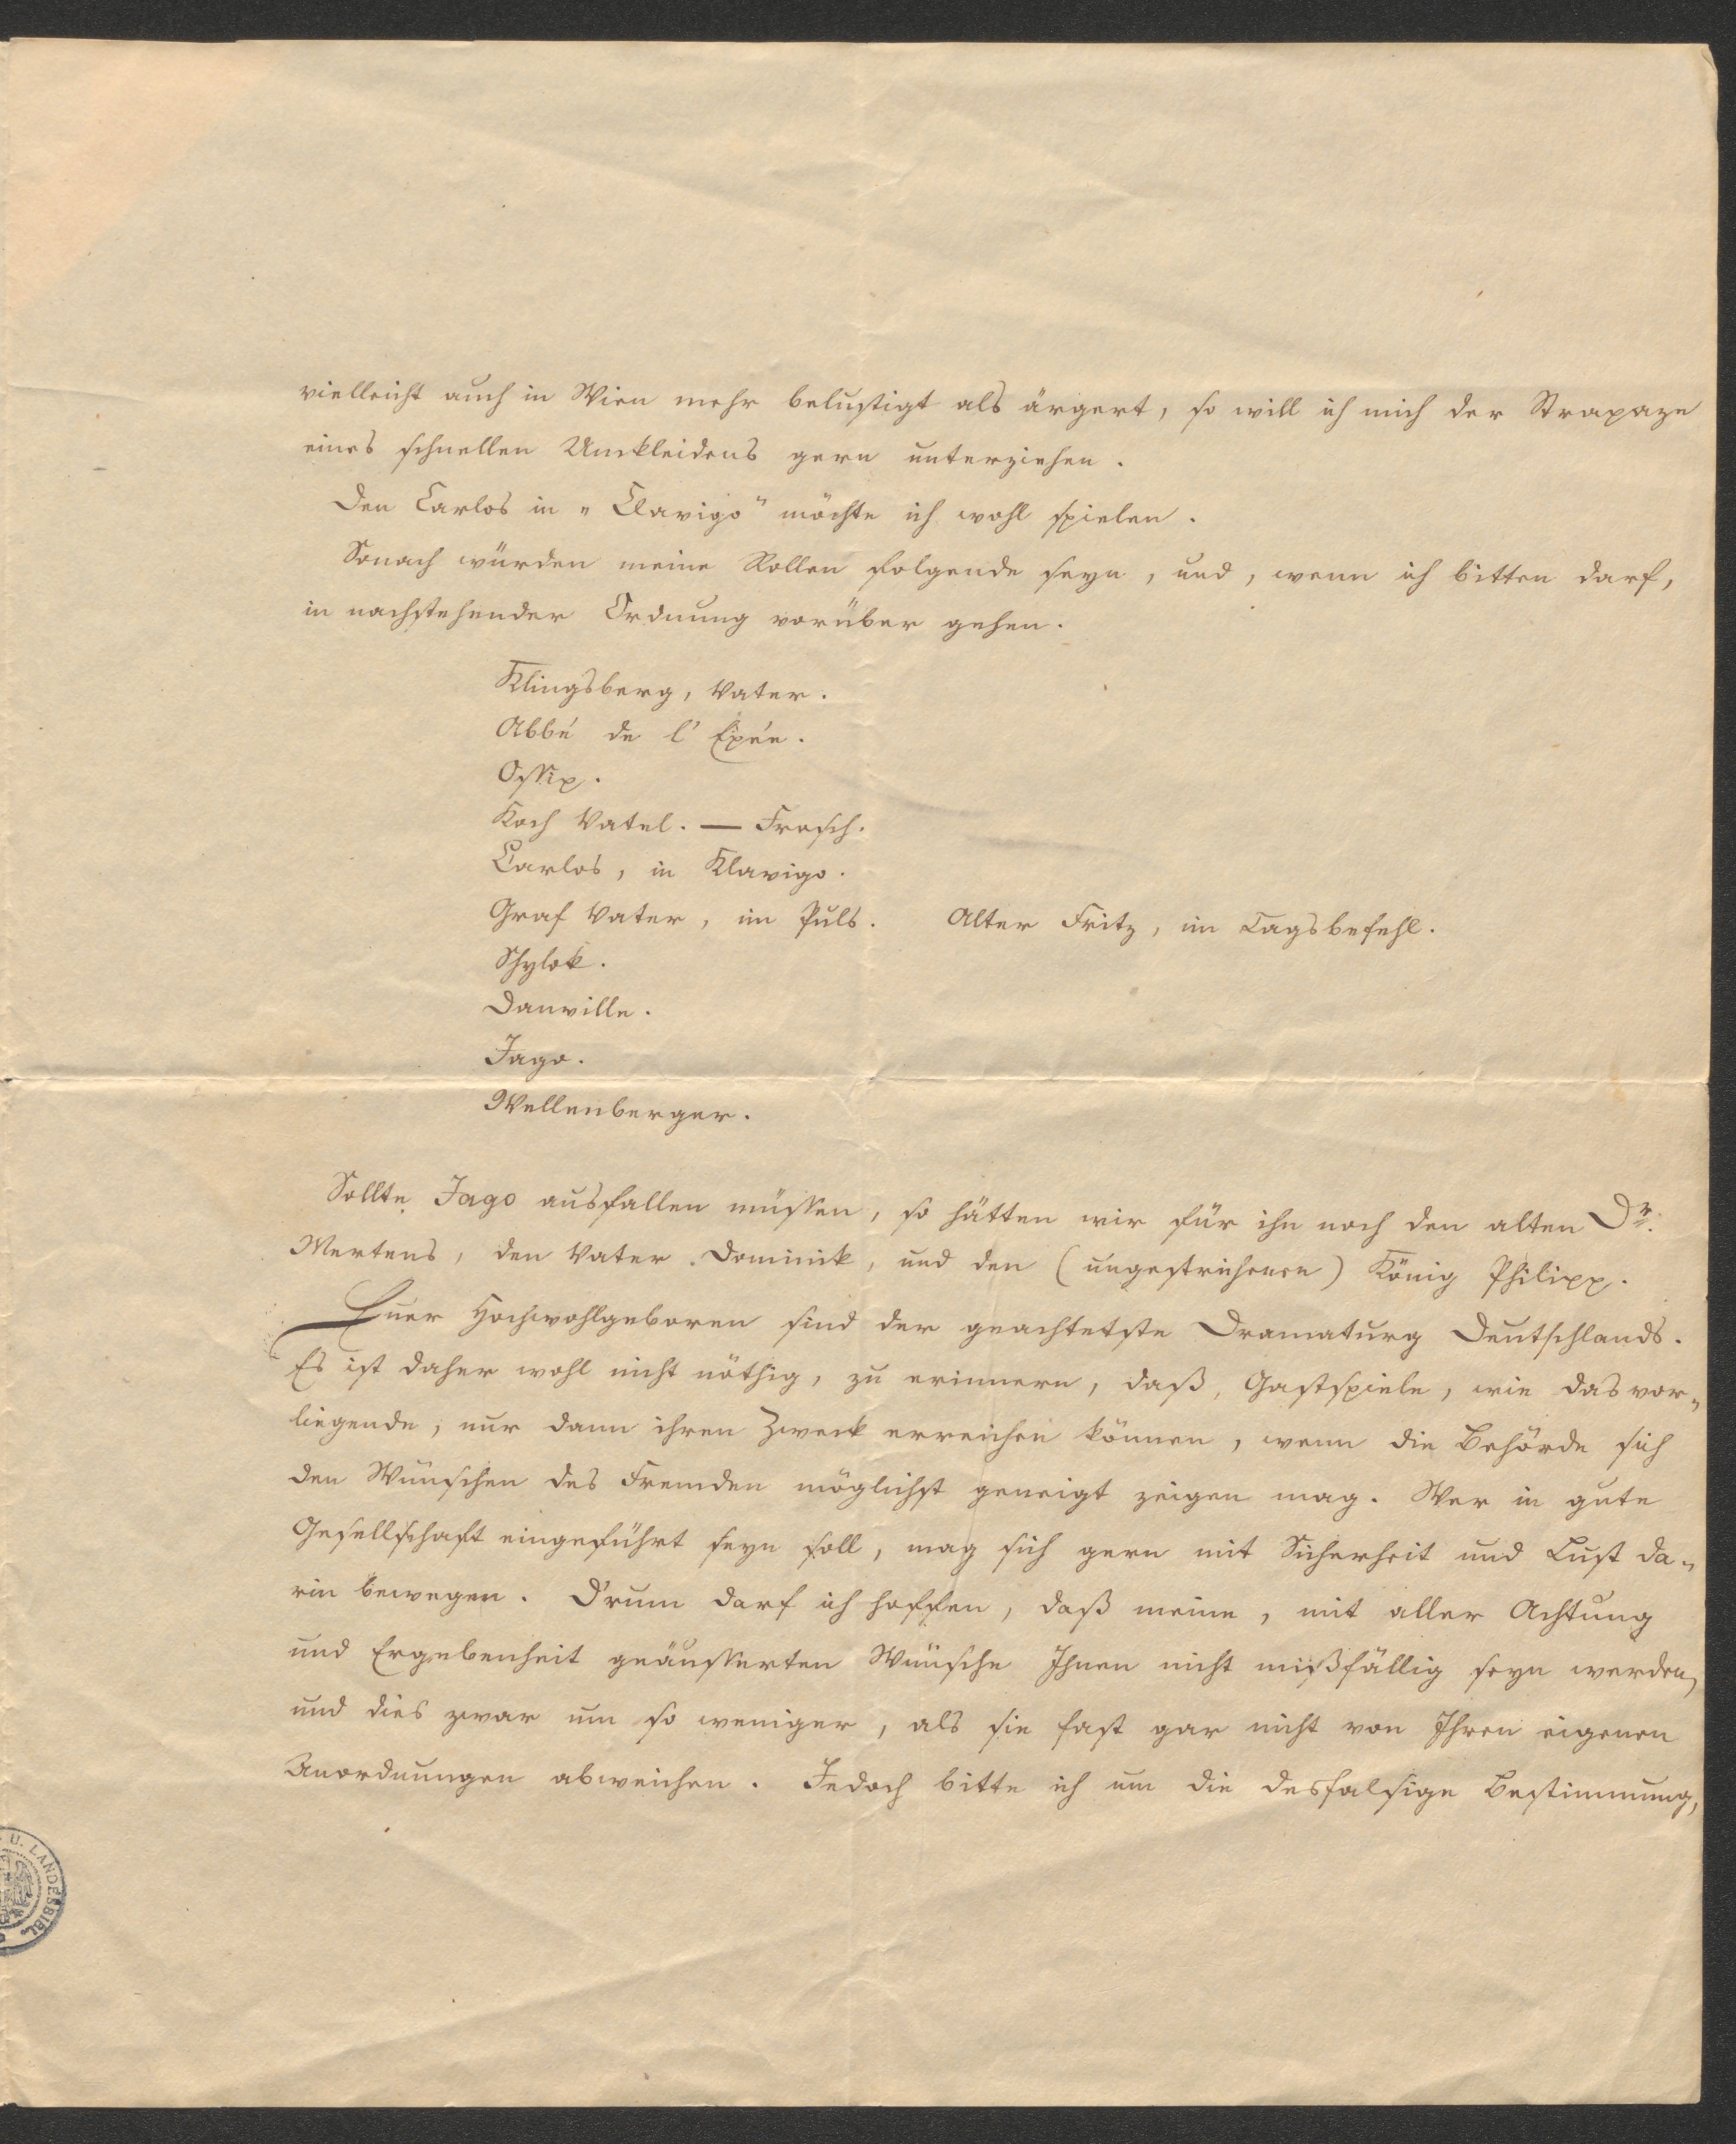 vielleicht auch in Wien mehr belustigt als ärgert, so will ich mich der Strapaze
eines schnellen Umkleidens gern unterziehen.
Den Carlos in „Clavigo" möchte ich wohl spielen.
Sonach würden meine Rollen folgende seyn, und, wenn ich bitten darf,
in nachstehender Ordnung vorüber gehen.
Klingsberg, Vater.
Abbé de l'Epée.
Ossip.
Koch Vatel. — Frosch.
Carlos, in Klavigo.
Graf Vater, im Puls. Alter Fritz, im Tagsbefehl.
Shylok.
Danville.
Jago.
Wellenberger.
Sollte Jago ausfallen müssen, so hätten wir für ihn noch den alten Dr.
Mertens, den Vater Dominik, und den (ungestrichenen) König Philipp.
Euer Hochwohlgeboren sind der geachtetste Dramaturg Deutschlands.
Es ist daher wohl nicht nöthig, zu erinnern, daß, Gastspiele, wie das vor„
liegende, nur dann ihren Zweck erreichen können, wenn die Behörde sich
den Wünschen des Fremden möglichst geneigt zeigen mag. Wer in gute
Gesellschaft eingeführt seyn soll, mag sich gern mit Sicherheit und Lust da„
rin bewegen. D'rum darf ich hoffen, daß meine, mit aller Achtung
und Ergebenheit geäusserten Wünsche Ihnen nicht mißfällig seyn werden,
und dies zwar um so weniger, als sie fast gar nicht von Ihren eigenen
Anordnungen abweichen. Jedoch bitte ich um die desfalsige Bestimmung,
U. LANDESBIBL.